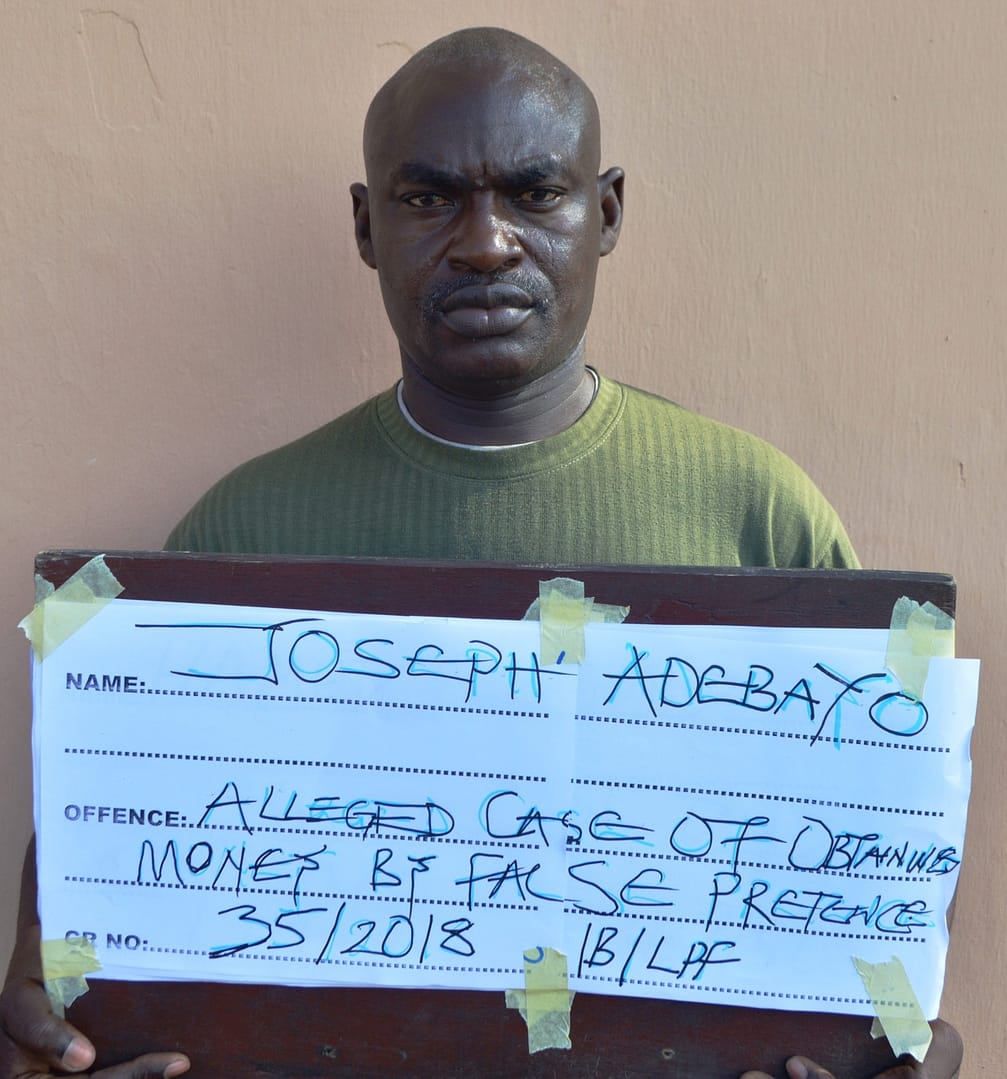 NAME: JOSEPH ADEBAYO
OFFENCE: ALLEGED CASE OF OBTAINING
MONEY BY FALSE PRETENCE
CR NO: 35/2018 IB/LPF